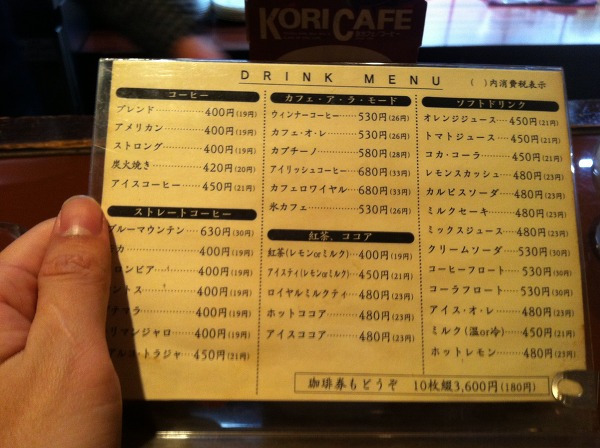 KORI CAFE
DRINK MENU
( )内消費税表示
コーヒー
ブレンド 400円(19円)
アメリカン 400円(19円)
ストロング 400円(19円)
炭火焼き 420円(20円)
アイスコーヒー 450円(21円)
ストレートコーヒー
ブルーマウンテン 630円(30円)
カ 400円(19円)
ロンビア 400円(19円)
ントス 400円(19円)
マラ 400円(19円)
リマンジャロ 400円(19円)
トラジャ 450円(21円)
カフェ・ア・ラ・モード
ウィンナーコーヒー 530円(26円)
カフェ・オ・レ 530円(26円)
カプチーノ 580円(28円)
アイリッシュコーヒー 680円(33円)
カフェロワイヤル 680円(33円)
氷カフェ 530円(26円)
紅茶、ココア
紅茶(レモンorミルク) 400円(19円)
アイスティ(レモンorミルク) 450円(21円)
ロイヤルミルクティ 480円(23円)
ホットココア 480円(23円)
アイスココア 480円(23円)
ソフトドリンク
オレンジジュース 450円(21円)
トマトジュース 450円(21円)
コカ・コーラ 450円(21円)
レモンスカッシュ 480円(23円)
カルピスソーダ 480円(23円)
ミルクセーキ 480円(23円)
ミックスジュース 480円(23円)
クリームソーダ 530円(30円)
コーヒーフロート 530円(30円)
コーラフロート 530円(30円)
アイス・オ・レ 480円(23円)
ミルク(温or冷) 450円(21円)
ホットレモン 480円(23円)
珈琲券もどうぞ 10枚綴3,600円(180円)